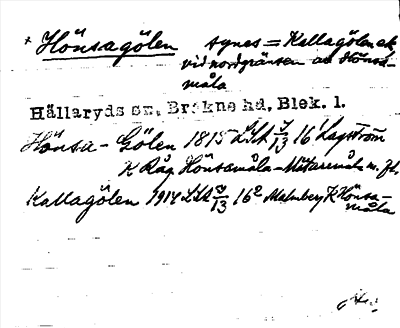 * Hönsagölen synes = Kallagölen ek
vid nordgränsen av Hönsa-
måla
Hällaryds sn. Bräkne hd, Blek. l.
Hönsa-Gölen 1815 LSA 7/13 16¹ Lagström
K Råg Hönsamåla - m. fl.
Kallagölen 1914 LSA 9/13 16² Malmberg K Hönsa-
måla